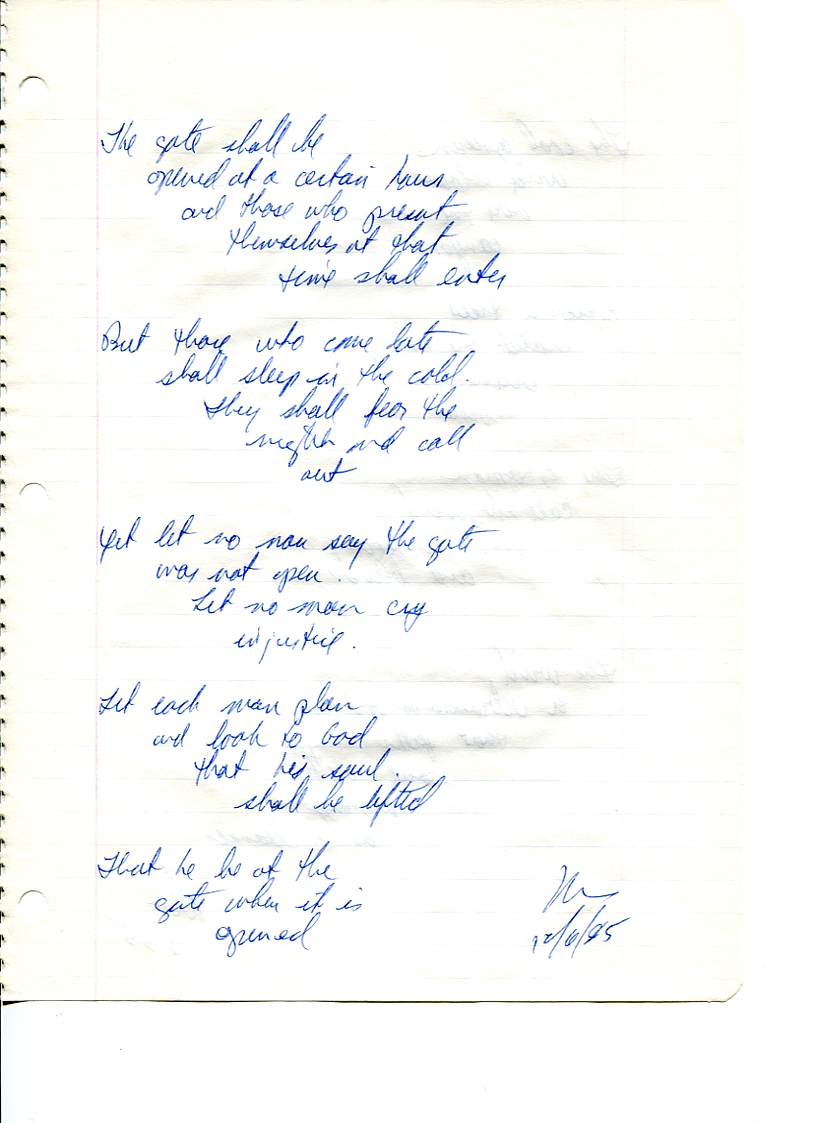 The gate shall be
opened at a certain hour
and those who present
themselves at that
time shall enter
But those who come late
shall sleep in the cold.
They shall fear the
night and call
out
Yet let no man say the gate
was not open.
Let no man cry
injustice.
Let each man plan
and look to God
that his soul
shall be lifted
That he be at the
gate when it is
opened